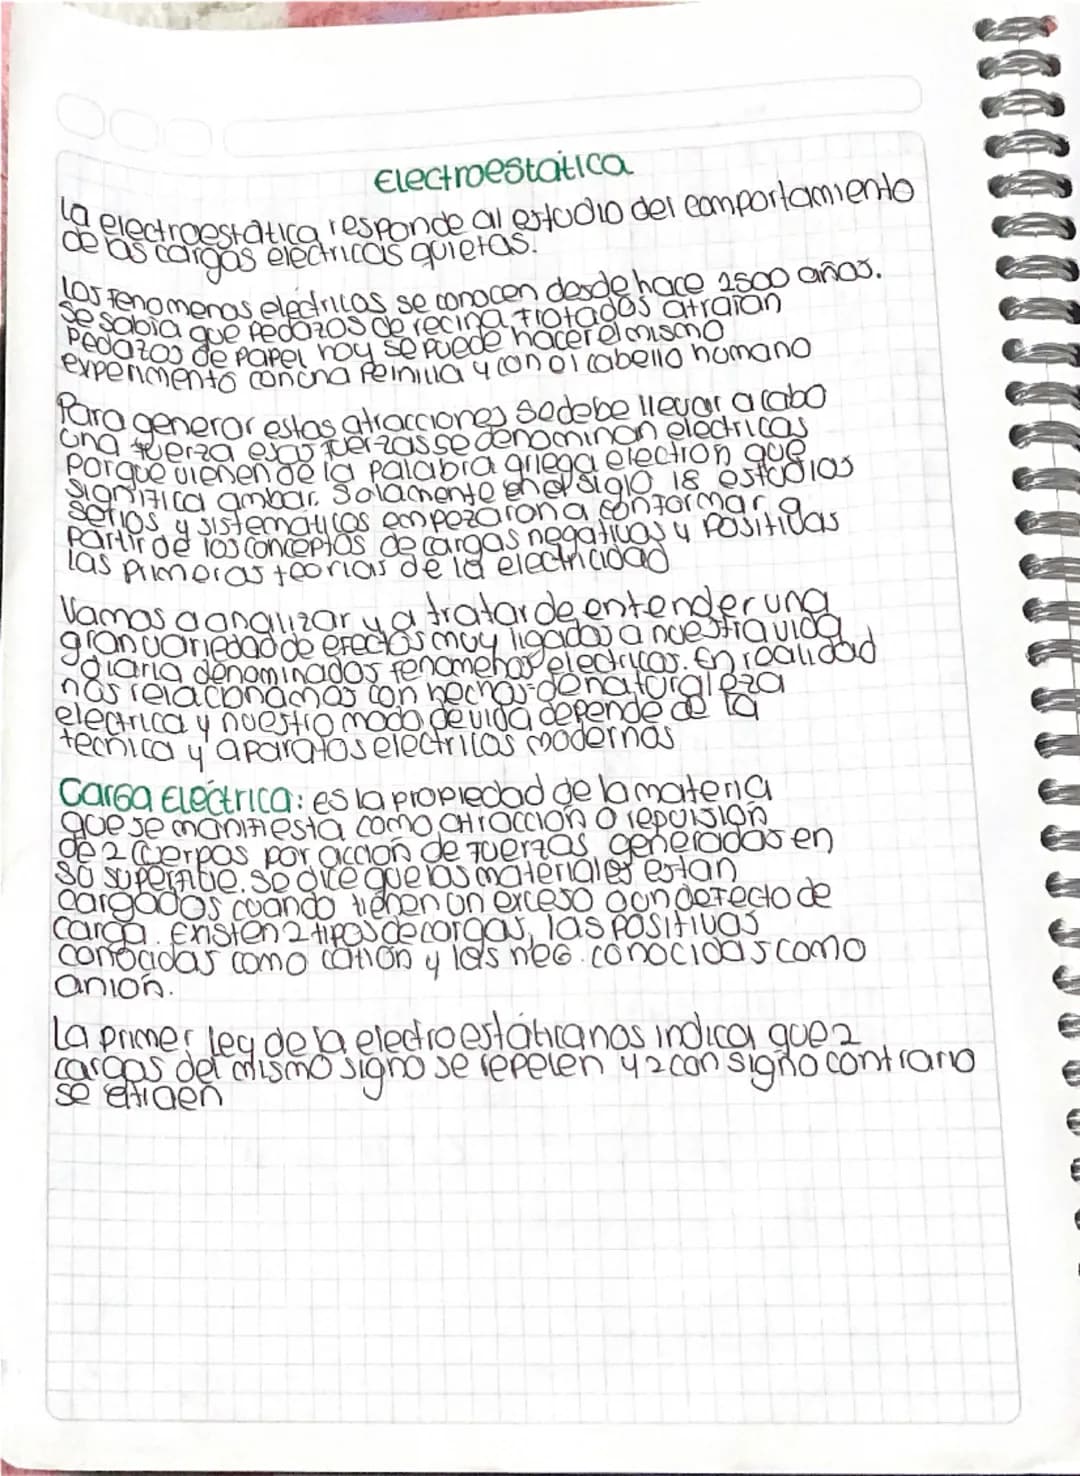 Electroestática
La electroestática responde al estudio del comportamiento
de las cargas eléctricas quietas.
Los fenomenos electricos se conocen desde hace 2500 años.
Se sabia que pedazos de recina frotados atraian
pedazos de papel hoy se puede hacer el mismo
experimento con una peinilla y con el cabello humano
Para generar estas atracciones se debe llevar a cabo
una fuerza esas fuerzas se denominan electricas
porque vienen de la palabra griega election que
significa ambar. Solamente en el siglo 18 estudios
serios y sistematicos empezaron a conformar a
partir de los conceptos de cargas negativas y positivas
las primeras teorias de la electricidad
Vamos a analizar y a tratar de entender una
gran variedad de efectos muy ligados a nuestra vida
diaria denominados fenomenos electricos. En realidad
nos relacionamos con hechos de naturaleza
electrica y nuestro modo de vida depende de la
tecnica y aparatos electricos modernos
Carga Eléctrica: es la propiedad de la materia
que se manifiesta como atracción o repulsión
de 2 cuerpos por acción de fuerzas generadas en
su superficie. Se dice que los materiales estan
cargados cuando tienen un exceso o un defecto de
carga. Existen 2 tipos de cargas, las positivas
conocidas como catión y las neg. conocidas como
anión.
La primer ley de la electroestática nos indica que 2
cargas del mismo signo se repelen y 2 con signo contrario
se atraen